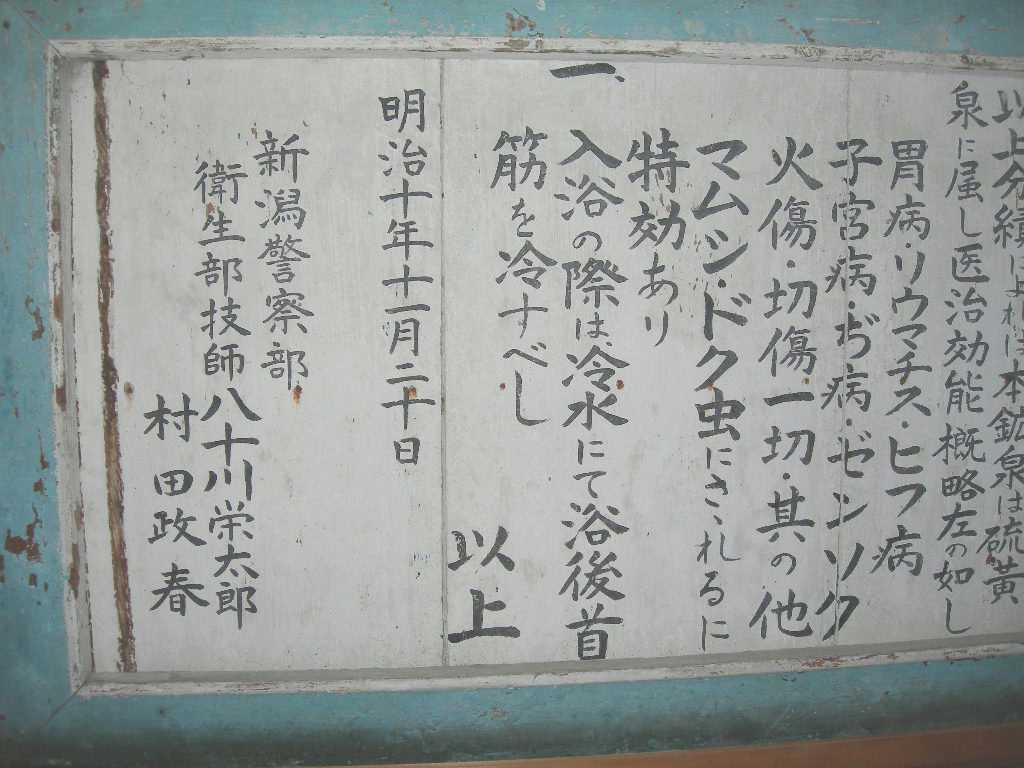 以上分績によれば本鉱泉は硫黄
泉に属し医治効能概略左の如し
胃病・リウマチス・ヒフ病
子宮病・ぢ病・ゼンソク
火傷・切傷一切・其の他
マムシ・ドク虫にさゝれるに
特効あり
一、入浴の際は冷水にて浴後首
筋を冷すべし
以上
明治十年十一月二十日
新潟警察部
衛生部技師八十川栄太郎
村田政春